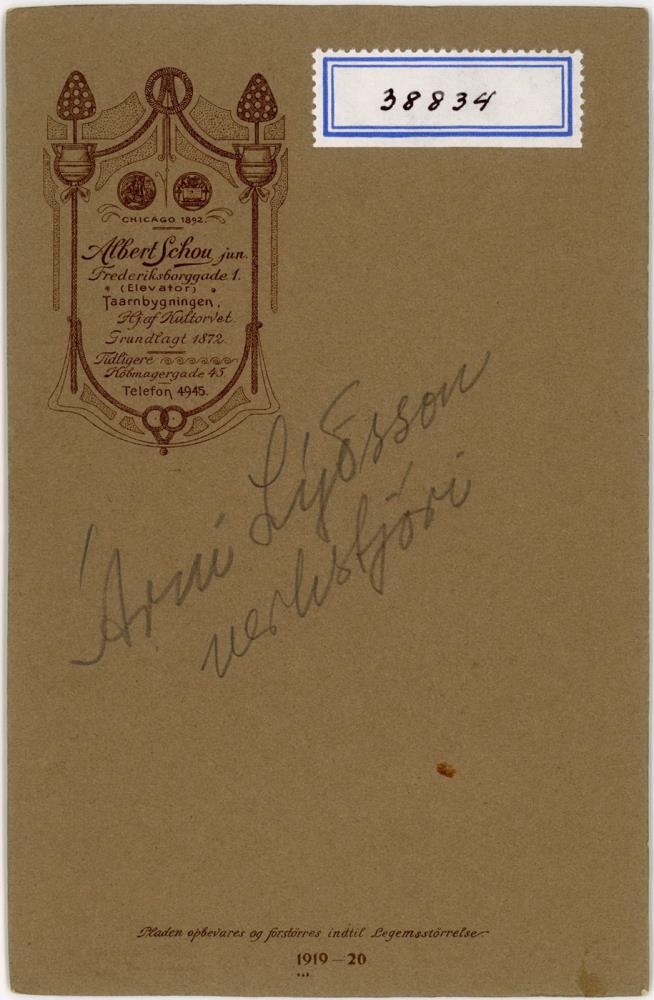 38834
CHICAGO 1892.
Albert Schou jun.
Frederiksborggade 1.
(Elevator)
Taarnbygningen,
Hj. af Kultorvet.
Grundlagt 1872.
Tidligere
Köbmagergade 45.
Telefon 4945.
Árni
verkstjóri
Pladen opbevares og forstörres indtil Legemsstörrelse
1919-20